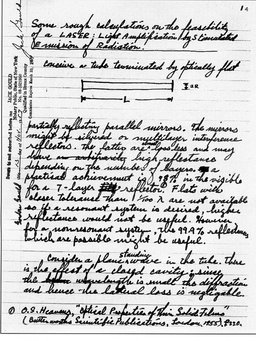 1.
Some rough calculations on the feasibility
of a LASER: Light Amplification by Stimulated
Emission of Radiation.
conceive a tube terminated by optically flat
L
partially reflecting parallel mirrors. The mirrors
might be silvered or multilayer interference
reflectors. The latter are lossless and may
have high reflectance
depending on the number of layers. a
practical achievement is 98% in the visible
for a 7-layer reflector. Flats with
closer tolerance than 1/100 λ are not available
so if a resonant system is desired, higher
reflectance would not be useful. However,
for a nonresonant system, the 99.9% reflectances
which are possible might be useful.
Consider a plane standing wave in the tube. There
is the effect of a closed cavity; since
the wavelength is small the diffraction
and hence the lateral loss is negligable.
O.S. Heavens, "Optical Properties of Thin Solid Films"
(Butterworths Scientific Publications, London, 1955),
JACK GOULD